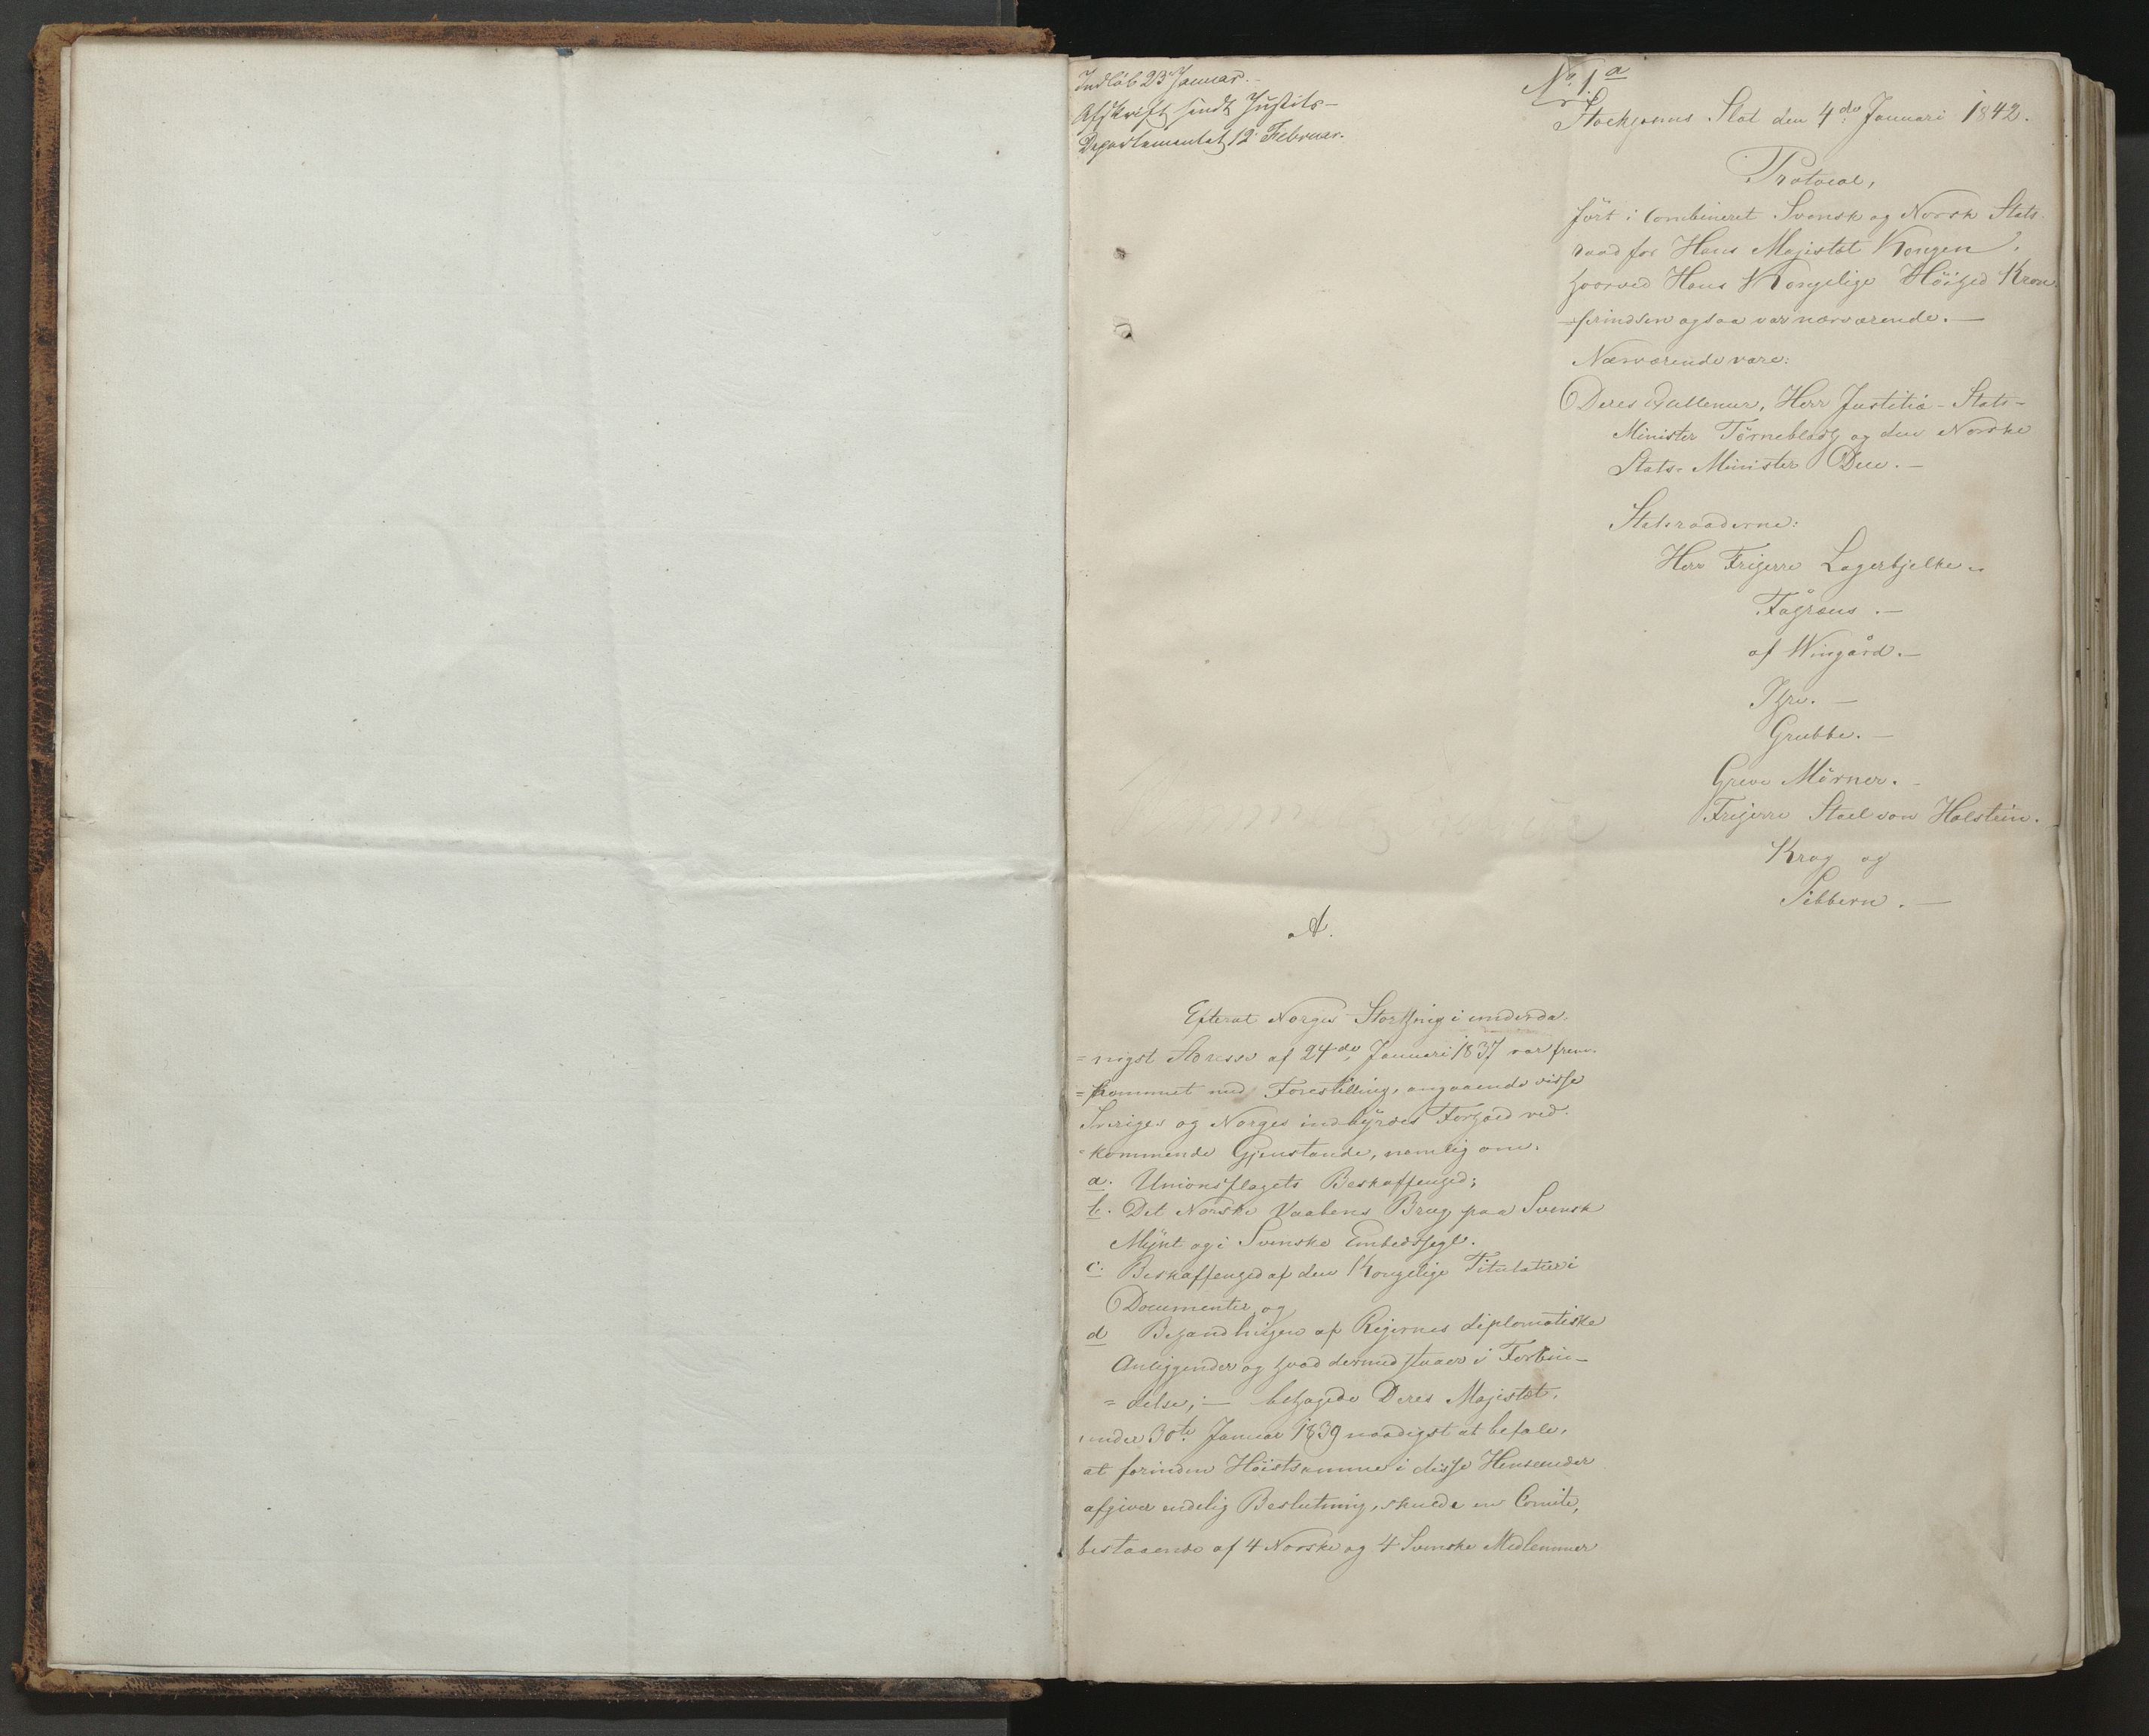 Indløb 23 Januar.
Afskrift sendt Justits-
Departementet 12 Februar.
No. 1 a
Stockholms Slot den 4de Januari 1842.
Protocol,
ført i combineret Svensk og Norsk Stats-
raad for Hans Majestæt Kongen,
hvorved Hans Kongelige Höihed Kron-
=prindsen ogsaa var nærværende. —
Nærværende vare:
Deres Excellencer, Herr Justitiæ-Stats-
Minister Törnebladh og den Norske
Stats-Minister Due. —
Statsraaderne:
Herr Friherre Lagerbjelke. -
Fåhræus. —
af Wingård. —
Ihre. —
Grubbe. —
Greve Mörner. -
Friherre Stael von Holstein.
Krog og
Sibbern. —
A.
Efterat Norges Storthing i underda-
=nigst Adresse af 24de Januari 1837 var frem-
=kommet med Forestilling, angaaende visse
Sveriges og Norges indbyrdes Forhold ved-
=kommende Gjenstande, nemlig om:
a. Unionsflagets Beskaffenhed;
b. Det Norske Vaabens Brug paa Svensk
Mynt og i Svenske Embedssegl.
c. Beskaffenhed af den Kongelige Titulatur i
Documenter, og
d Behandlingen af Rigernes diplomatiske
Anliggender og hvad dermed staaer i Forbin-
=delse; — behagede Deres Majestæt,
under 30te Januar 1839 naadigst at befale,
at forinden Höistsamme i disse Henseender
afgiver endelig Beslutning, skulde en Comite,
bestaaende af 4 Norske og 4 Svenske Medlemmer